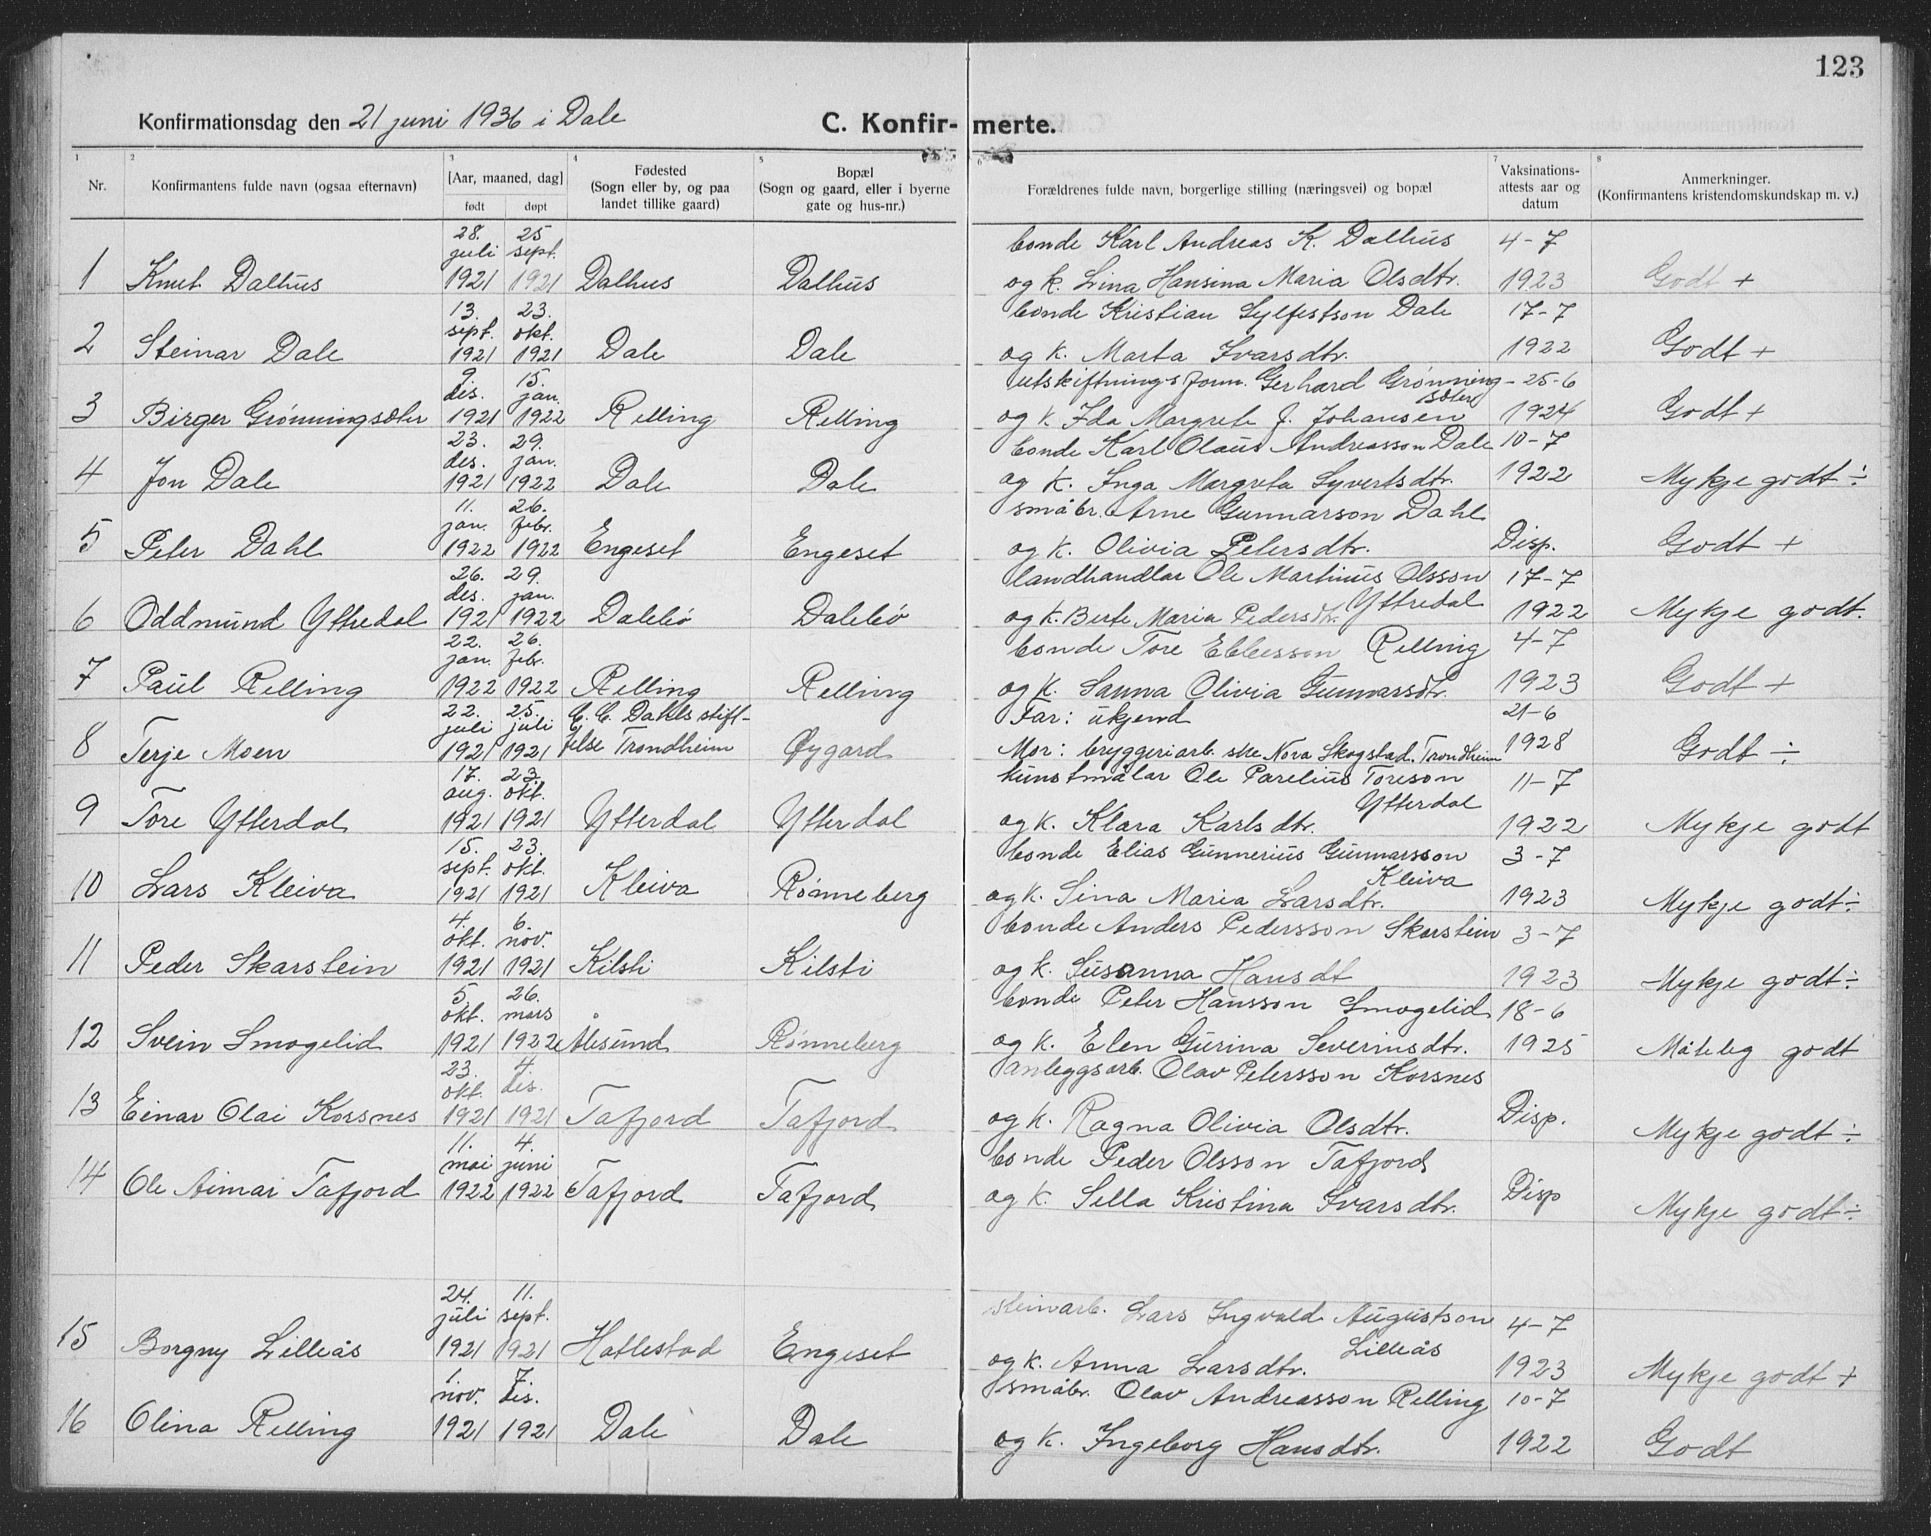 123
Konfirmationsdag den 21 juni 1936 i Dale C. Konfirmerte.
1 2 3 4 5 6 7 8
Nr. Konfirmantens fulde navn (ogsaa efternavn) [Aar, maaned, dag] født døpt Fødested (Sogn eller by, og paa landet tillike gaard) Bopæl (Sogn og gaard, eller i byerne gate og hus-nr.) Forældrenes fulde navn, borgerlige stilling (næringsvei) og bopæl Vaksinationsattests aar og datum Anmerkninger. (Konfirmantens kristendomskundskap m. v.)
28. 25 bonde Karl Andreas K. Dalhus 4-7
juli sept.
1 Knut Dalhus 1921 1921 Dalhus Dalhus og k. Lina Hansina Maria Olsdtr. 1923 Godt +
13. 23. bonde Kristian Sylfestson Dale 17-7
sept. okt.
2 Steinar Dale 1921 1921 Dale Dale og k. Marta Ivarsdtr. 1922 Godt +
9. 15. utskiftningsform. Gerhard Grønningsæter 25-6
des. jan.
3 Birger Grønningsæter 1921 1922 Relling Relling og k. Ida Margrete J. Johansen 1924 Godt +
23. 29. bonde Karl Olaus Andreasson Dale 10-7
des. jan.
4 Jon Dale 1921 1922 Dale Dale og k. Inga Margreta Syvertsdtr. 1922 Mykje godt ÷
11. 26. småbr. Arne Gunnarson Dahl
jan. febr.
5 Peter Dahl 1922 1922 Engeset Engeset og k. Olivia Petersdtr. Disp. Godt +
26. 29. landhandlar Ole Martinus Olsson 17-7
des. jan. Yttredal
6 Oddmund Yttredal 1921 1922 Dalebø Dalebø og k. Berte Maria Pedersdtr. 1922 Mykje godt.
22. 26. bonde Tore Ebbesson Relling 4-7
jan. febr.
7 Paul Relling 1922 1922 Relling Relling og k. Sanna Olivia Gunnarsdtr. 1923 Godt +
22. 25. E. C. Dahls stift- Far: ukjend 21-6
juli juli
8 Terje Moen 1921 1921 else Trondheim Øygard Mor: bryggeriarb.ske Nora Skogstad. Trondheim 1928 Godt ÷
17. 23. kunstmålar Ole Parelius Toreson 11-7
aug. okt. Ytterdal
9 Tore Ytterdal 1921 1921 Ytterdal Ytterdal og k. Klara Karlsdtr. 1922 Mykje godt
15. 23. bonde Elias Gunnerius Gunnarsson 3-7
sept. okt. Kleiva
10 Lars Kleiva 1921 1921 Kleiva Rønneberg og k. Sina Maria Larsdtr. 1923 Mykje godt ÷
4. 6. bonde Anders Pedersson Skarstein 3-7
okt. nov.
11 Peder Skarstein 1921 1921 Kilsti Kilsti og k. Susanna Hansdt 1923 Mykje godt ÷
5. 26. bonde Peter Hansson Smogelid 18-6
okt. mars
12 Svein Smogelid 1921 1922 Ålesund Rønneberg og k. Elen Gurina Severinsdtr. 1925 Måteleg godt
23. 4. anleggsarb. Olav Petersson Korsnes
okt. des.
13 Einar Olai Korsnes 1921 1921 Tafjord Tafjord og k. Ragna Olivia Olsdtr. Disp. Mykje godt ÷
11. 4. bonde Peder Olsson Tafjord
mai juni
14 Ole Aimar Tafjord 1922 1922 Tafjord Tafjord og k. Sella Kristina Ivarsdtr. Disp Mykje godt ÷
24. 11. steinarb. Lars Ingvald Augustson 4-7
juli sept. Lilleås
15 Borgny Lilleås 1921 1921 Hatlestad Engeset og k. Anna Larsdtr. 1923 Mykje godt +
1. 7. småbr. Olav Andreasson Relling 10-7
nov. des.
16 Olina Relling 1921 1921 Dale Dale og k. Ingeborg Hansdtr. 1922 Godt